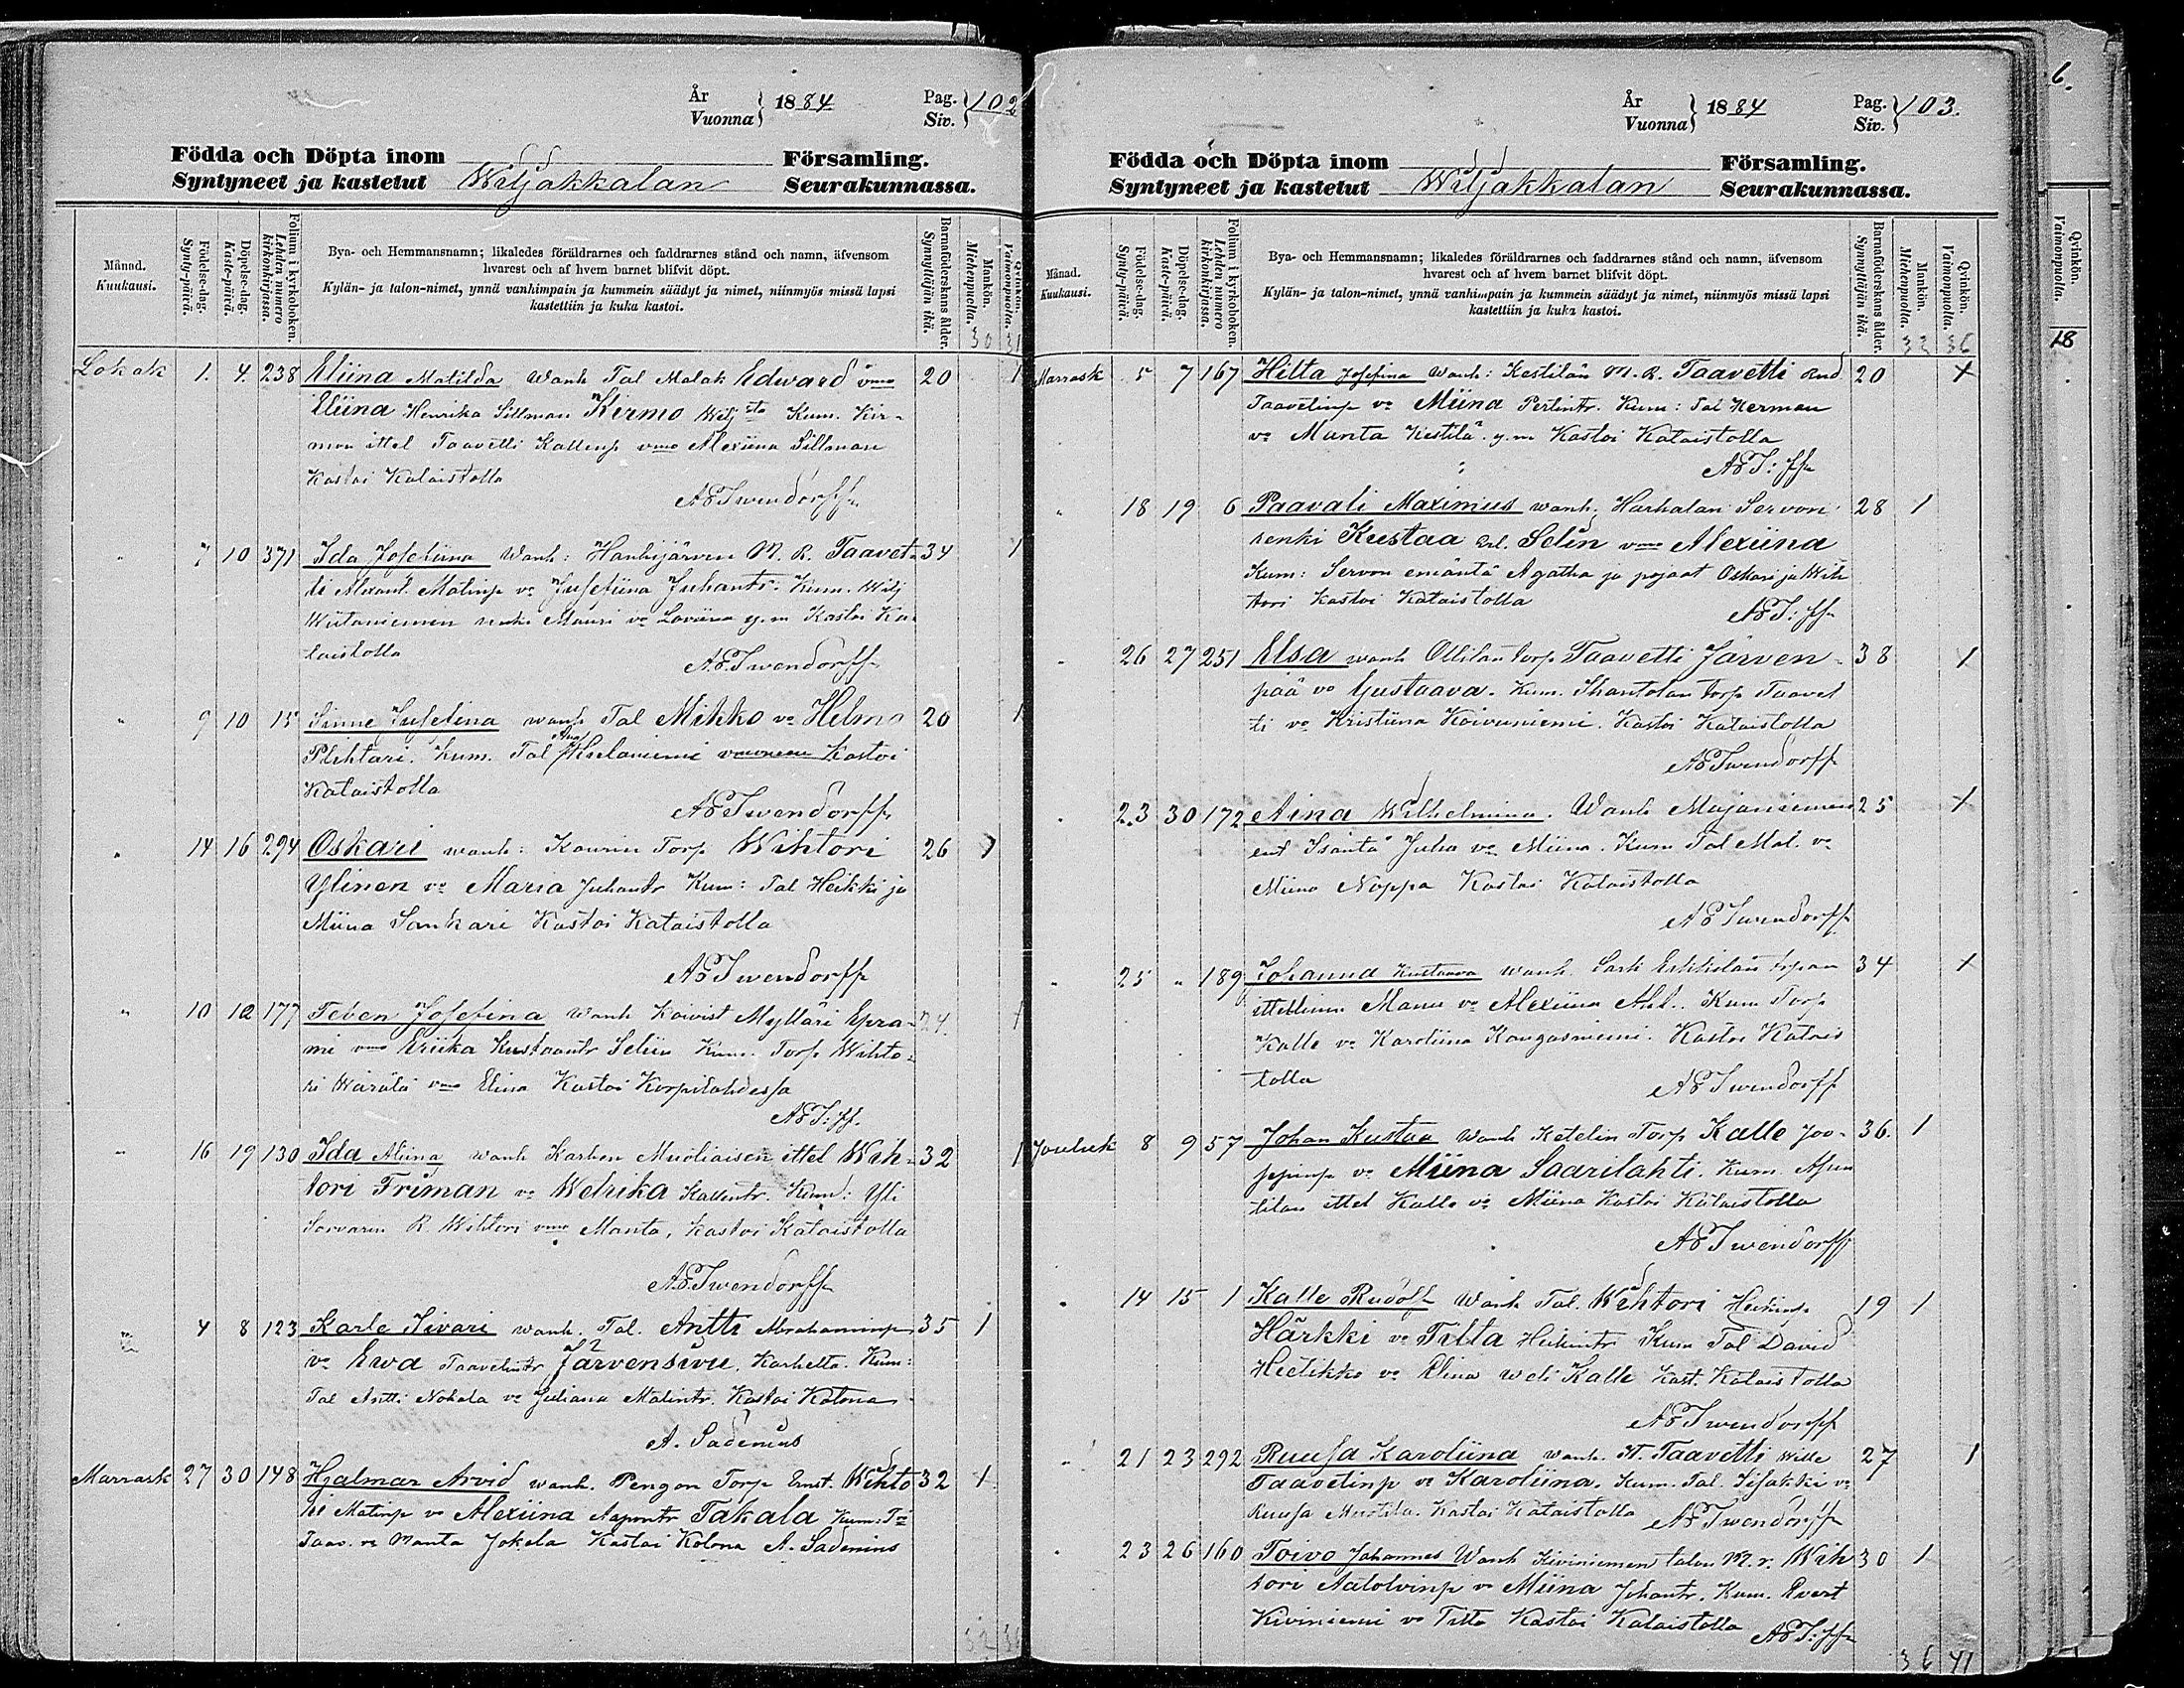 År
Vuonna } 1884
Pag.
Siv. } 102
Födda och Döpta inom Församling.
Syntyneet ja kastetut Wiljakkalan Seurakunnassa.
Månad.
Kuukausi.
Födelse-dag.
Synty-päivä.
Döpelse-dag.
Kaste-päivä.
Folium i kyrkoboken.
Lehden numero kirkonkirjassa.
Bya- och Hemmansnamn; likaledes föräldrarnes och faddrarnes stånd och namn, äfvensom
hvarest och af hvem barnet blifvit döpt.
Kylän- ja talon-nimet, ynnä vanhimpain ja kummein säädyt ja nimet, niinmyös missä lapsi
kastettiin ja kuka kastoi.
Barnaföderskans ålder.
Synnyttäjän ikä.
Mankön.
Miehenpuolta.
Qvinkön.
Vaimonpuolta.
30 31
Lokak 1. 4. 238 Eliina Matilda Wanh Tal Malak Edward vmo 20 1
Eliina Henrika Sillman Kirmo Kum. Kir-
mon ittel Taavetti vmo Alexiina Sillman
Kastoi Kataistolla
AETwendorff
" 7 10 371 Ida Josefiina Wanh: Hanhijärven M. R. Taavet- 34 1
ti Matinp vo Josefiina Juhantr. Kum. Wilj
Mauri vo Loviina y.m Kastoi Ka-
taistolla
AETwendorff
" 9 10 15 Sinne Jusefina wanh Tal Mikko vo Helma 20 1
Plihtari. Kum. Tal Kastoi
Kataistolla
AETwendorff
" 14 16 294 Oskari wanh: Kaurin Torp Wihtori 26 1
Ylinen vo Maria Juhantr Kum: Tal Heikki ja
Miina Sankari Kastoi Kataistolla
AETwendorff
" 10 12 177 Josefina Wanh Koivist Mylläri Epra- 24. 1
mi vmo Eriika Kustaantr Selin Kum. Torp Wihto-
ri Wärälä vmo Elina Kastoi Korpilahdessa
AET:ff.
" 16 19 130 Ida Aliina wanh Karhen Muoliaisen ittel Wih- 32 1
tori Friman vo Wetrika Kallentr. Kum: Yli
R Wihtori vmo Manta, Kastoi Kataistolla
AETwendorff
" 4 8 123 Karle Iivari wanh. Tal. Antti Abrahaminp 35 1
vo Ewa Taavetintr Järvensivu, Karhella. Kum:
Tal Antti Nokala vo Juliana Matintr. Kastoi Kotona
A. Sadenius
Marrask 27 30 148 Hjalmar Arvid wanh. Pengon Torp Ernst. Wihto 32 1
ri Matinp vo Alexiina Takala Kum:
Taav. vo Manta Jokela Kastoi Kotona A. Sadenius
32 36
År
Vuonna } 1884
Pag.
Siv. } 103.
Födda och Döpta inom Församling.
Syntyneet ja kastetut Wiljakkalan Seurakunnassa.
Månad.
Kuukausi.
Födelse-dag.
Synty-päivä.
Döpelse-dag.
Kaste-päivä.
Folium i kyrkoboken.
Lehden numero kirkonkirjassa.
Bya- och Hemmansnamn; likaledes föräldrarnes och faddrarnes stånd och namn, äfvensom
hvarest och af hvem barnet blifvit döpt.
Kylän- ja talon-nimet, ynnä vanhimpain ja kummein säädyt ja nimet, niinmyös missä lapsi
kastettiin ja kuka kastoi.
Barnaföderskans ålder.
Synnyttäjän ikä.
Mankön.
Miehenpuolta.
Qvinkön.
Vaimonpuolta.
32 36
Marrask 5 7 167 Hilta Josefina Wanh: Kestilän M. R. Taavetti 20 1
Taavetinp vo Miina Pertintr. Kum: Tal Herman
vo Manta Kestilä y.m Kastoi Kataistolla
AET:ff
" 18 19 6 Paavali Maximius wanh. Harhalan Servon 28 1
renki Kustaa Selin vmo Alexiina
Kum: Servon emäntä Agatha ja pojaat Oskari ja Wih
tori Kastoi Kataistolla
AET:ff
" 26 27 251 Elsa wanh Ollilan torp Taavetti Järven- 38 1
pää vo Gustaava. Kum. torp Taavet
ti vo Kristiina Koivuniemi. Kastoi Kataistolla
AETwendorff
" 23 30 172 Aina Wilhelmina. Wanh Majaniemen 25 1
ent Isäntä Juha vo Miina. Kum Tal Mal. vo
Miina Noppa Kastoi Kataistolla
AETwendorff
" 25 " 189 Johanna Kustaava wanh. 34 1
ittellinen Manu vo Alexiina Kum Torp
Kalle vo Karoliina Kangasniemi. Kastoi Katais
tolla
AETwendorff
Jouluk 8 9 57 Johan Kustaa Wanh Ketelin Torp Kalle Joo- 36. 1
seppinp vo Miina Saarilahti. Kum.
tilan ittel Kalle vo Miina Kastoi Kataistolla
AETwendorff
" 14 15 1 Kalle Rudolf Wanh Tal. Wihtori Heikinp 19 1
Härkki vo Tilta Heikintr Kum Tal David
Hietikko vo Elina weli Kalle Kast. Kataistolla
AETwendorff
" 21 23 292 Ruusa Karoliina wanh. It. Taavetti Wille 27 1
Taavetinp vo Karoliina. Kum. Tal. Iisakki vo
Ruusa Kastoi Kataistolla AETwendorff
" 23 26 160 Toivo Johannes Wanh Kiviniemen talon M. r. Wih 30 1
tori Aatolvinp vo Miina Johantr. Kum. Evert
Kiviniemi vo Tilta Kastoi Kataistolla AET:ff
36 41
6.
Qvinkön.
Vaimonpuolta.
18